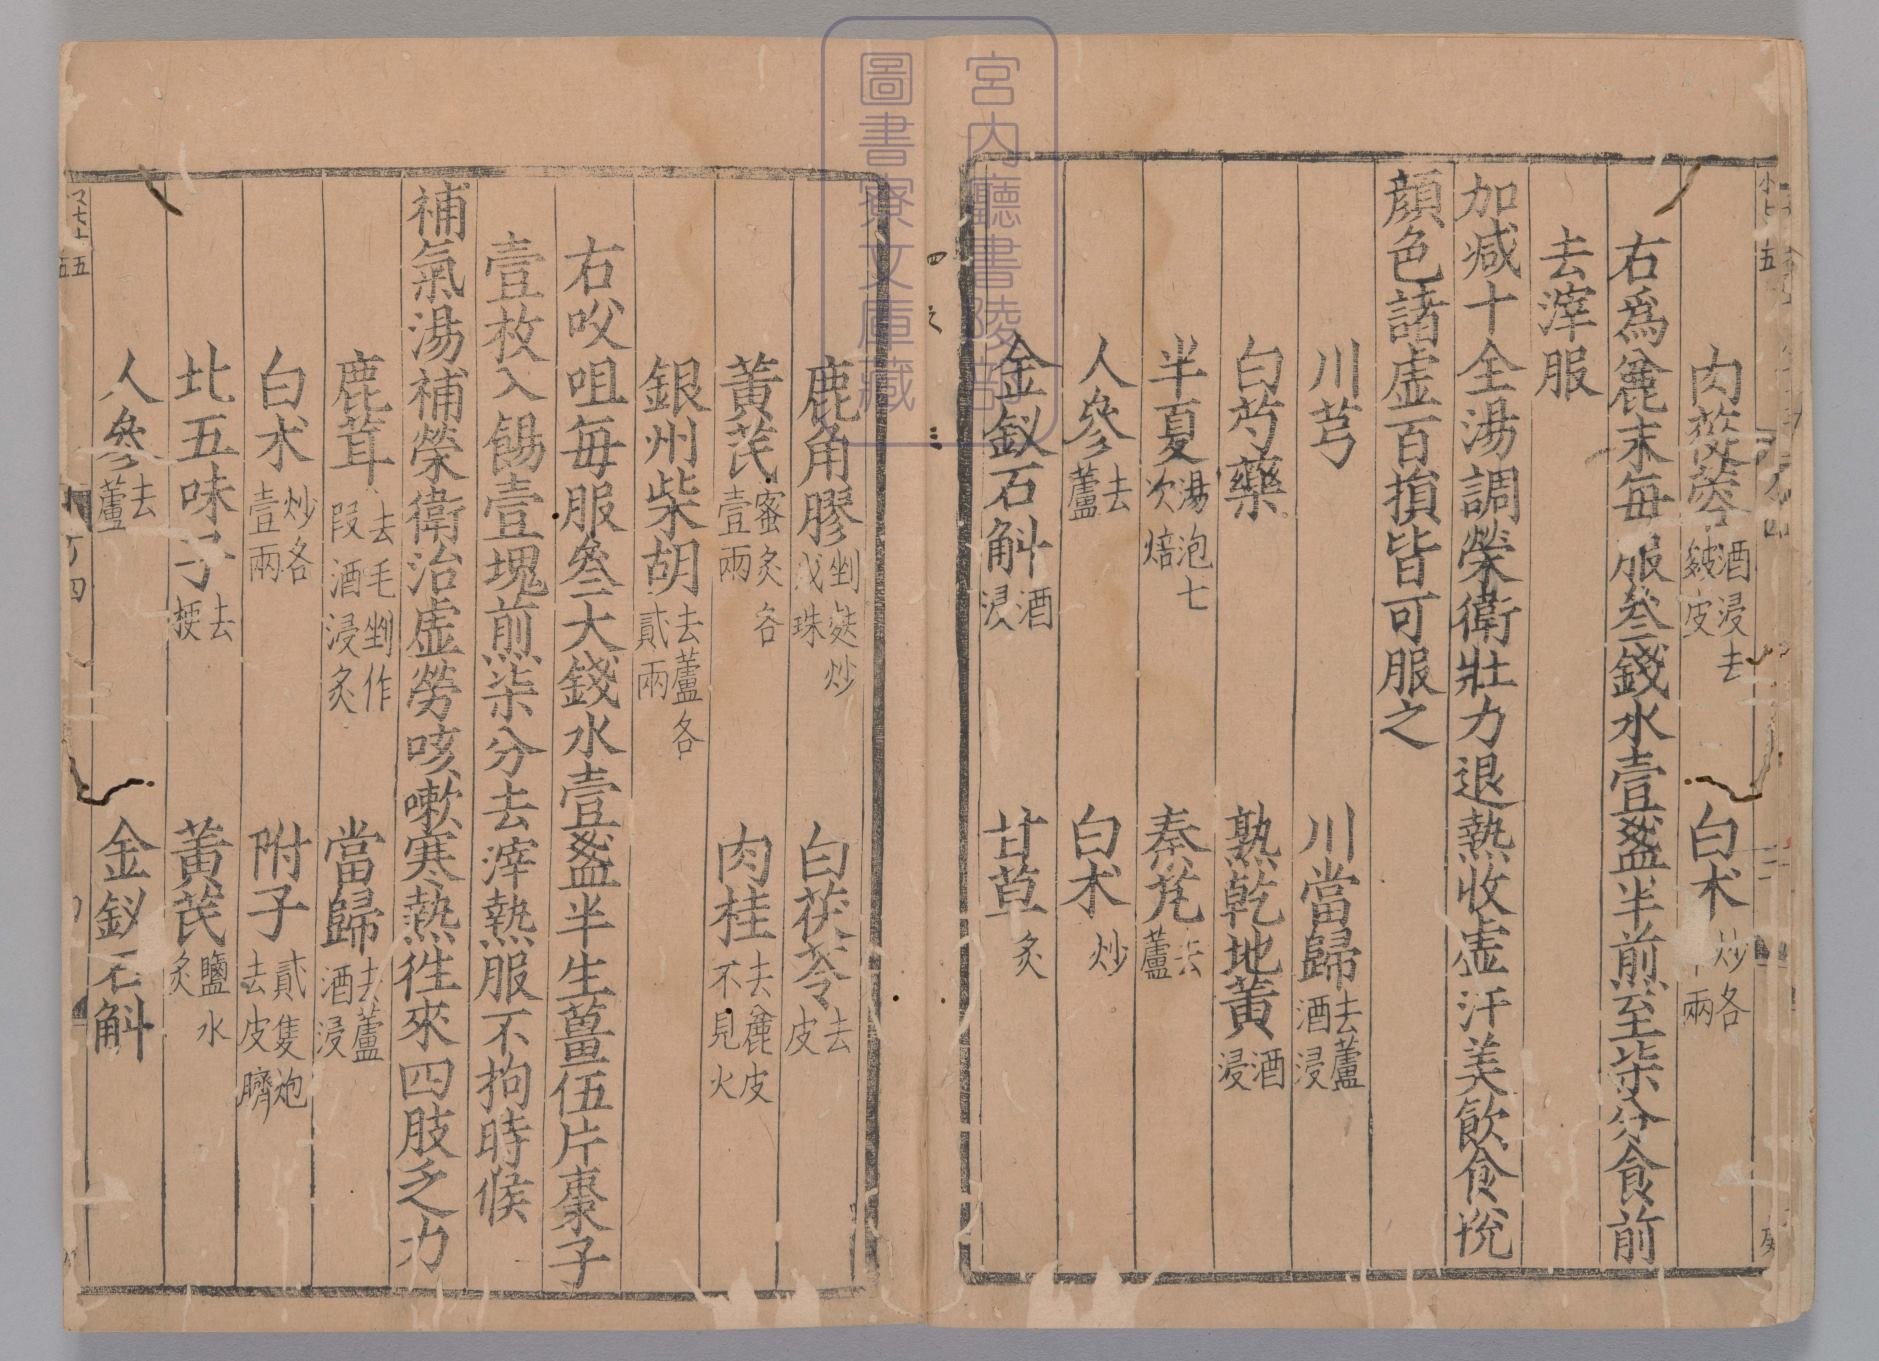 肉蓯蓉酒浸去皴皮 白术炒各兩
右爲麄末每服叁錢水壹盞半煎至柒分食前
去滓服
加减十全湯調榮衛壯力退熱收虛汗美飲食悅
顔色諸虛百損皆可服之
川芎 川當歸去蘆酒浸
白芍藥 熟乾地黃酒浸
半夏湯泡七次焙 秦艽去蘆
人參去蘆 白术炒
金釵石斛酒浸 甘草炙
鹿角膠剉麸炒成珠 白茯苓去皮
黃芪蜜炙各壹兩 肉桂去麄皮不見火
銀州柴胡去蘆各貳兩
右㕮咀每服叁大錢水壹盞半生薑伍片棗子
壹枚入餳壹塊煎柒分去滓熱服不拘時候
補氣湯補榮衛治虛勞咳嗽寒熱徃來四肢乏力
鹿茸去毛剉作段酒浸炙 當歸去蘆酒浸
白术炒各壹兩 附子貳隻炮去皮臍
北五味子去梗 黃芪鹽水炙
人參去蘆 金釵石斛
宮内廳書陵部
圖書寮文庫藏